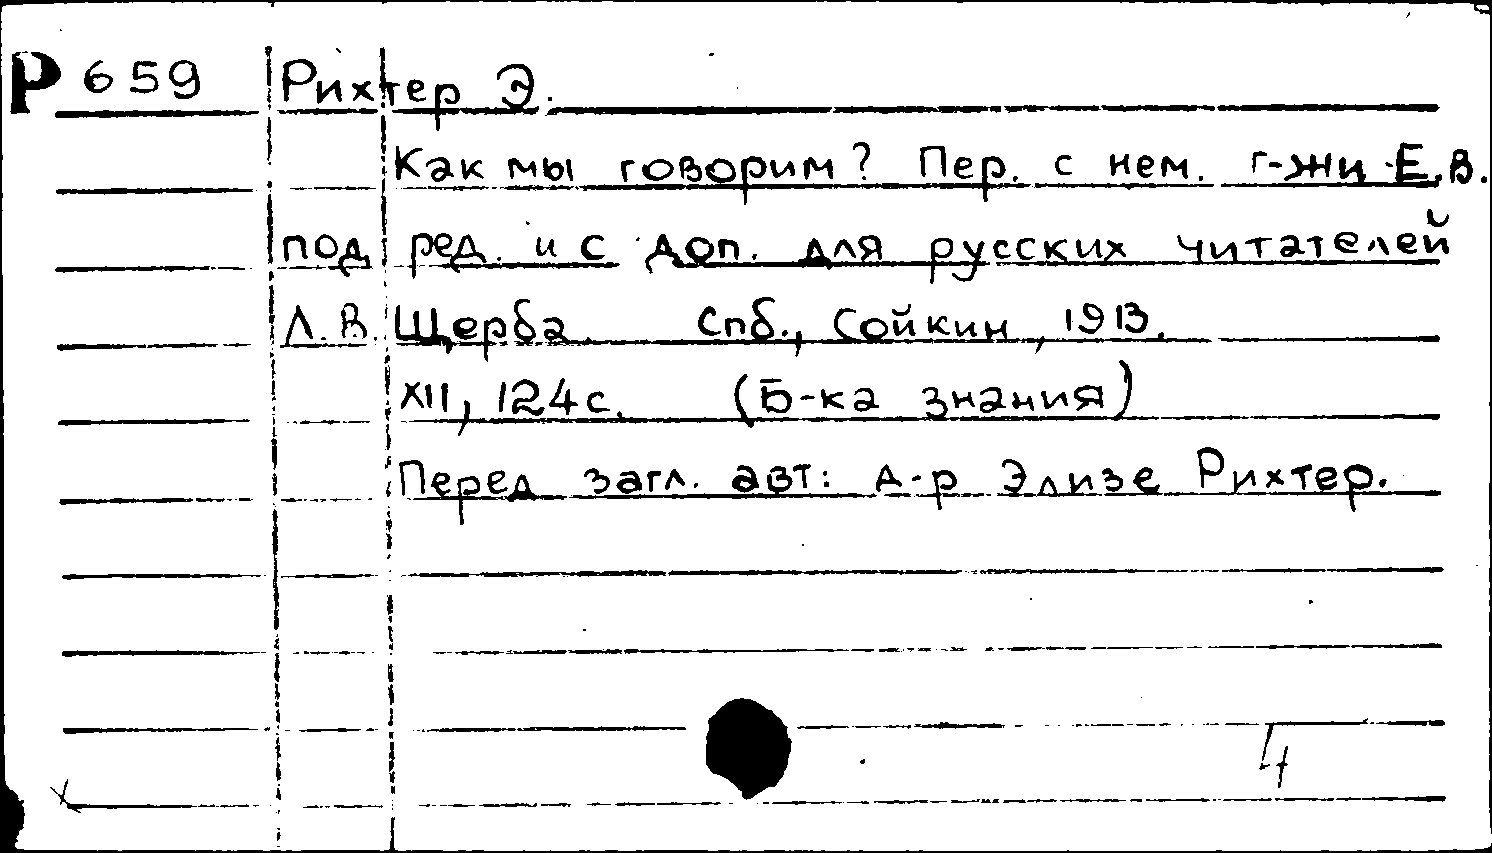 Р 659 Рихтер Э.
Как мы говорим? Пер. с нем. г-жи Е.В.
под ред. и с доп. для русских читателей
Л.В. Щерба. Спб., Сойкин, 1913.
XII, 124с. (Б-ка знания)
Перед загл. авт: д-р Элизе Рихтер.
4